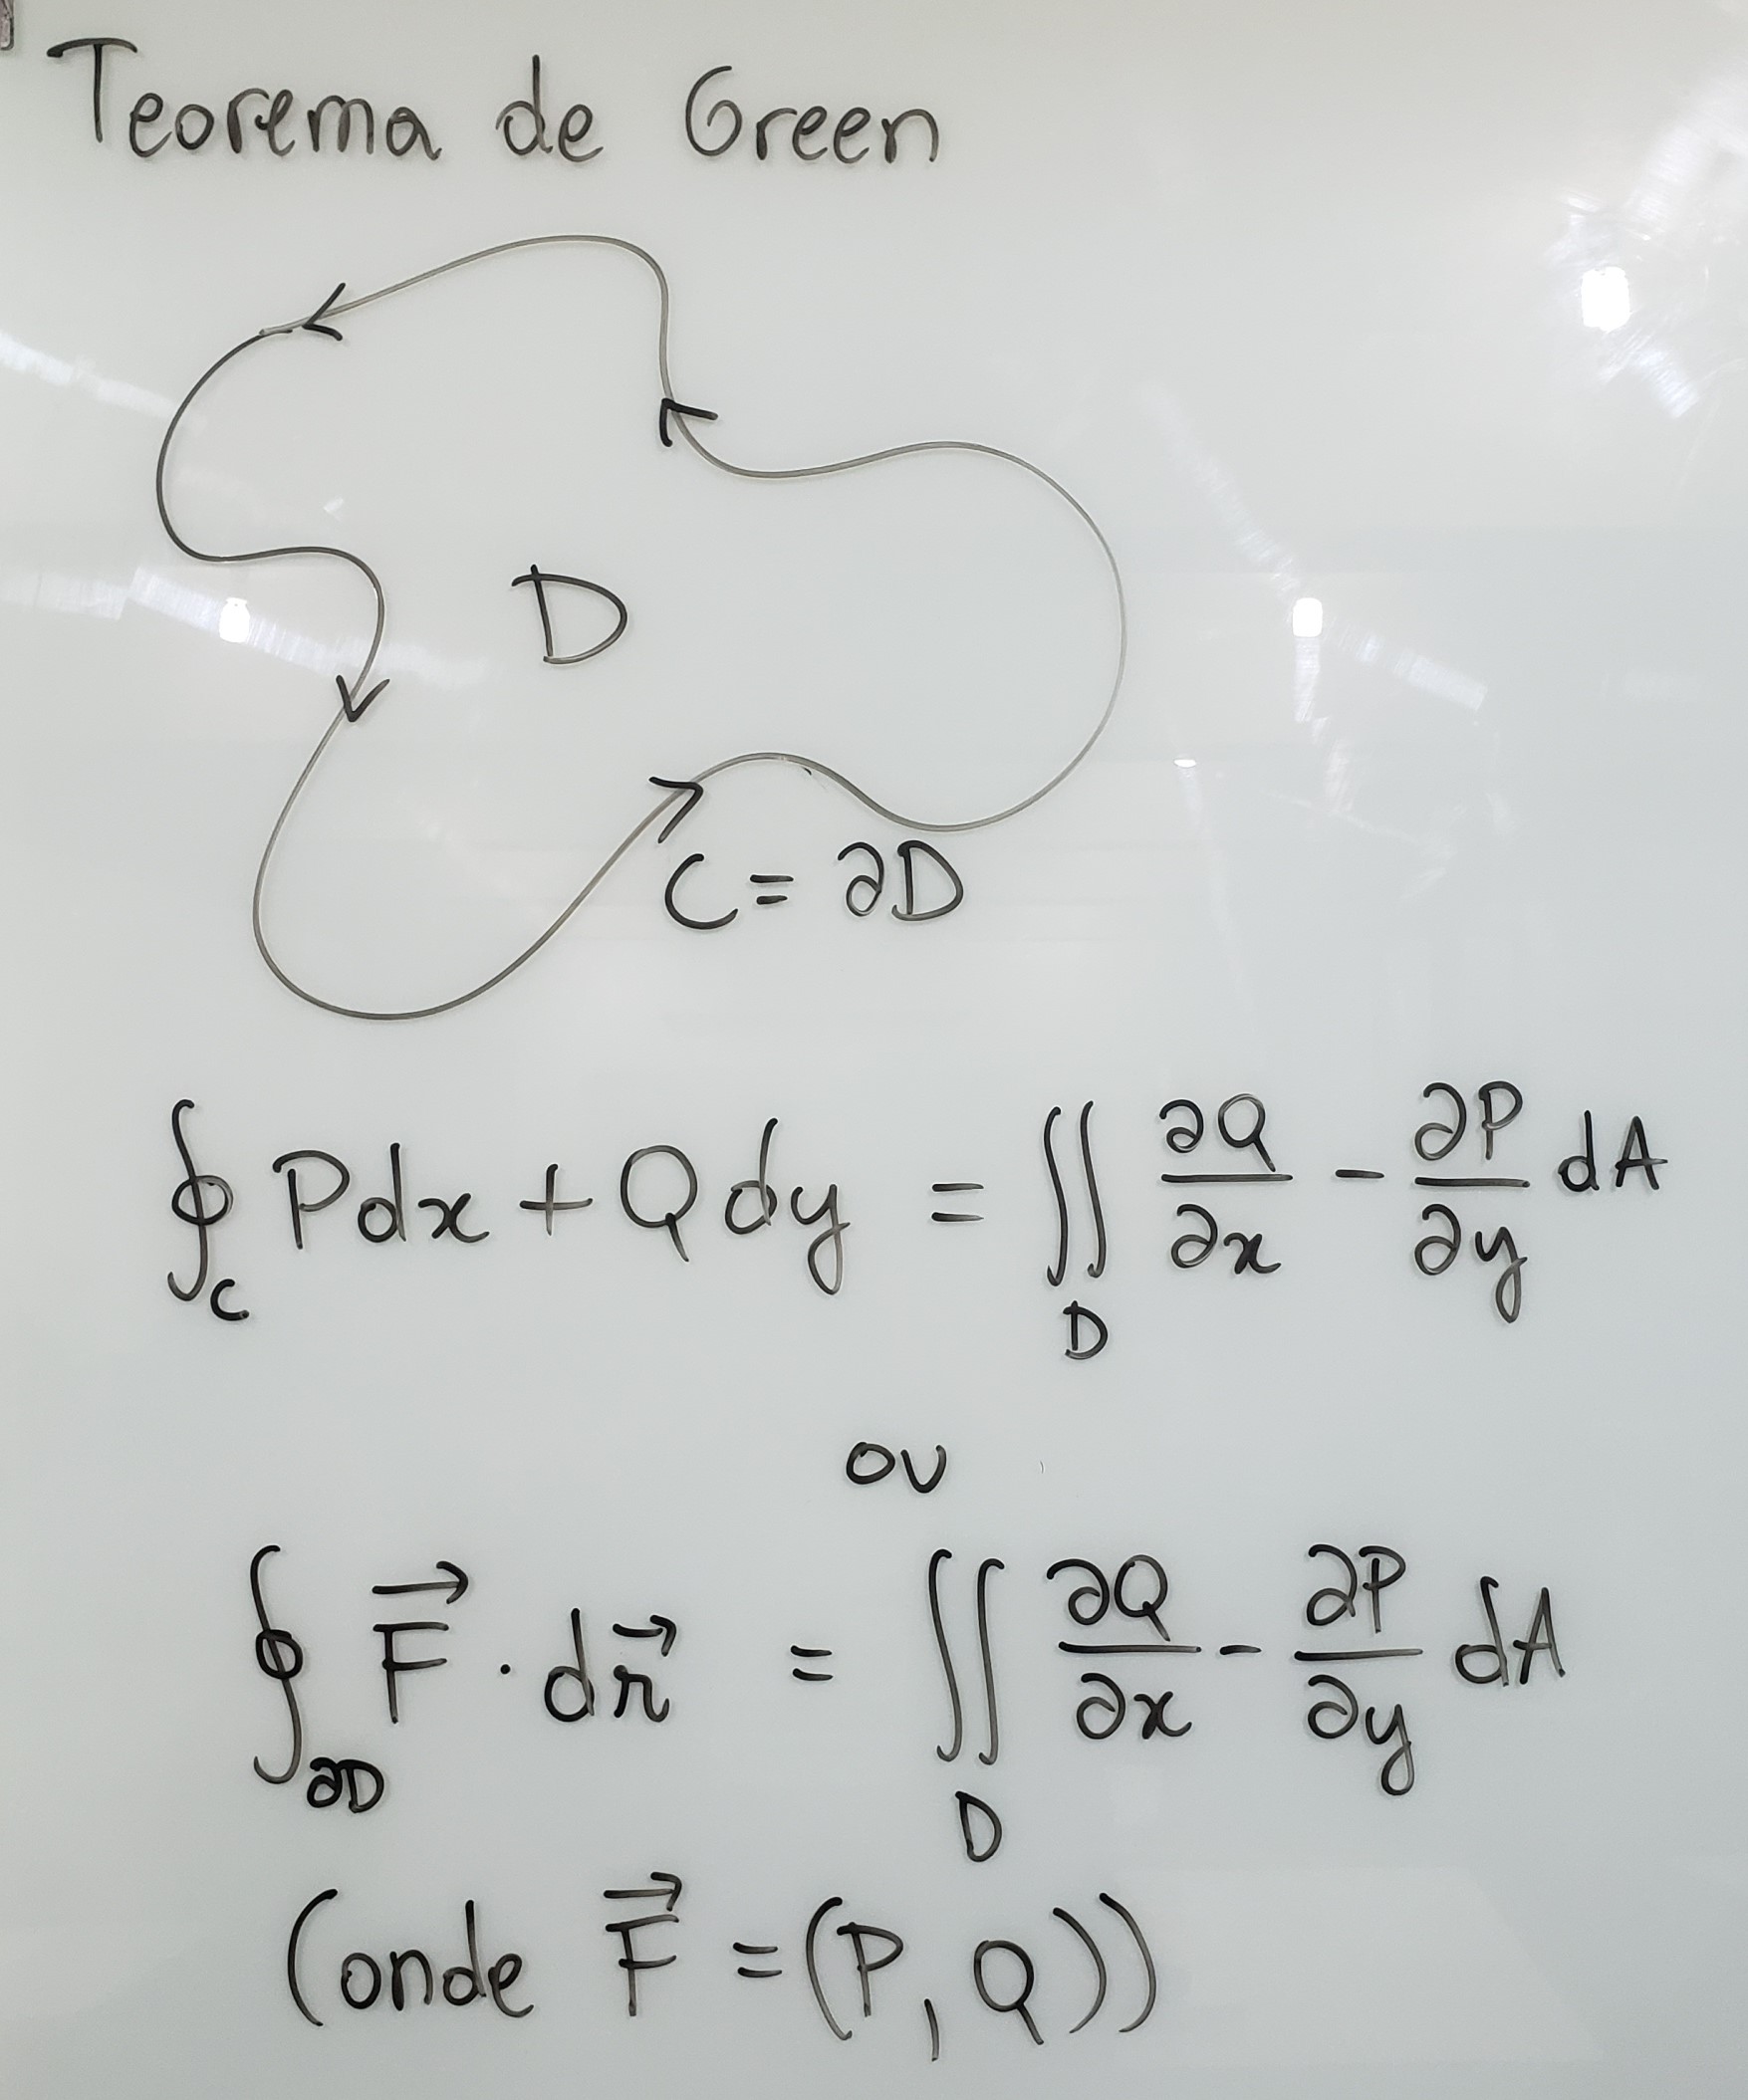 Teorema de Green
D
C = ∂D
∮_C Pdx + Qdy = ∬_D ∂Q/∂x - ∂P/∂y dA
ou
∮_∂D F⃗ · dr⃗ = ∬_D ∂Q/∂x - ∂P/∂y dA
(onde F⃗ = (P, Q))